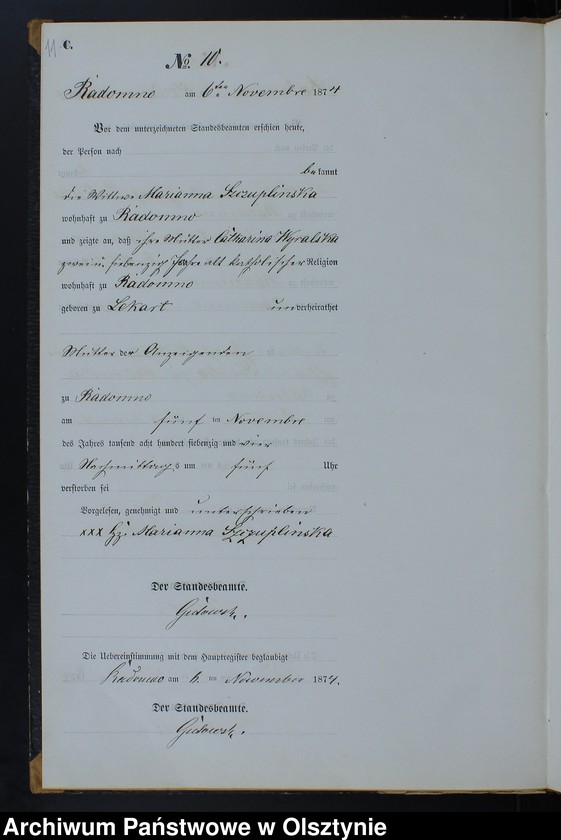 11 C.
No. 10.
Radomno am 6ten Novembre 1874
Vor dem unterzeichneten Standesbeamten erschien heute,
der Person nach
bekannt
die Wittwe Marianna Szczuplinska
wohnhaft zu Radomno
und zeigte an, daß ihre Mutter Catharina Wyralska
zwei u. siebenzig Jahre alt katholischer Religion
wohnhaft zu Radomno
geboren zu Lekart unverheirathet
Mutter der Anzeigenden
zu Radomno
am fünf ten Novembre
des Jahres tausend acht hundert siebenzig und vier
Nachmittags um fünf Uhr
verstorben sei
Vorgelesen, genehmigt und unterschrieben
xxx Hz. Marianna Szczuplinska
Der Standesbeamte.
Die Uebereinstimmung mit dem Hauptregister beglaubigt
Radomno am 6. ten November 1874.
Der Standesbeamte.
Archiwum Państwowe w Olsztynie